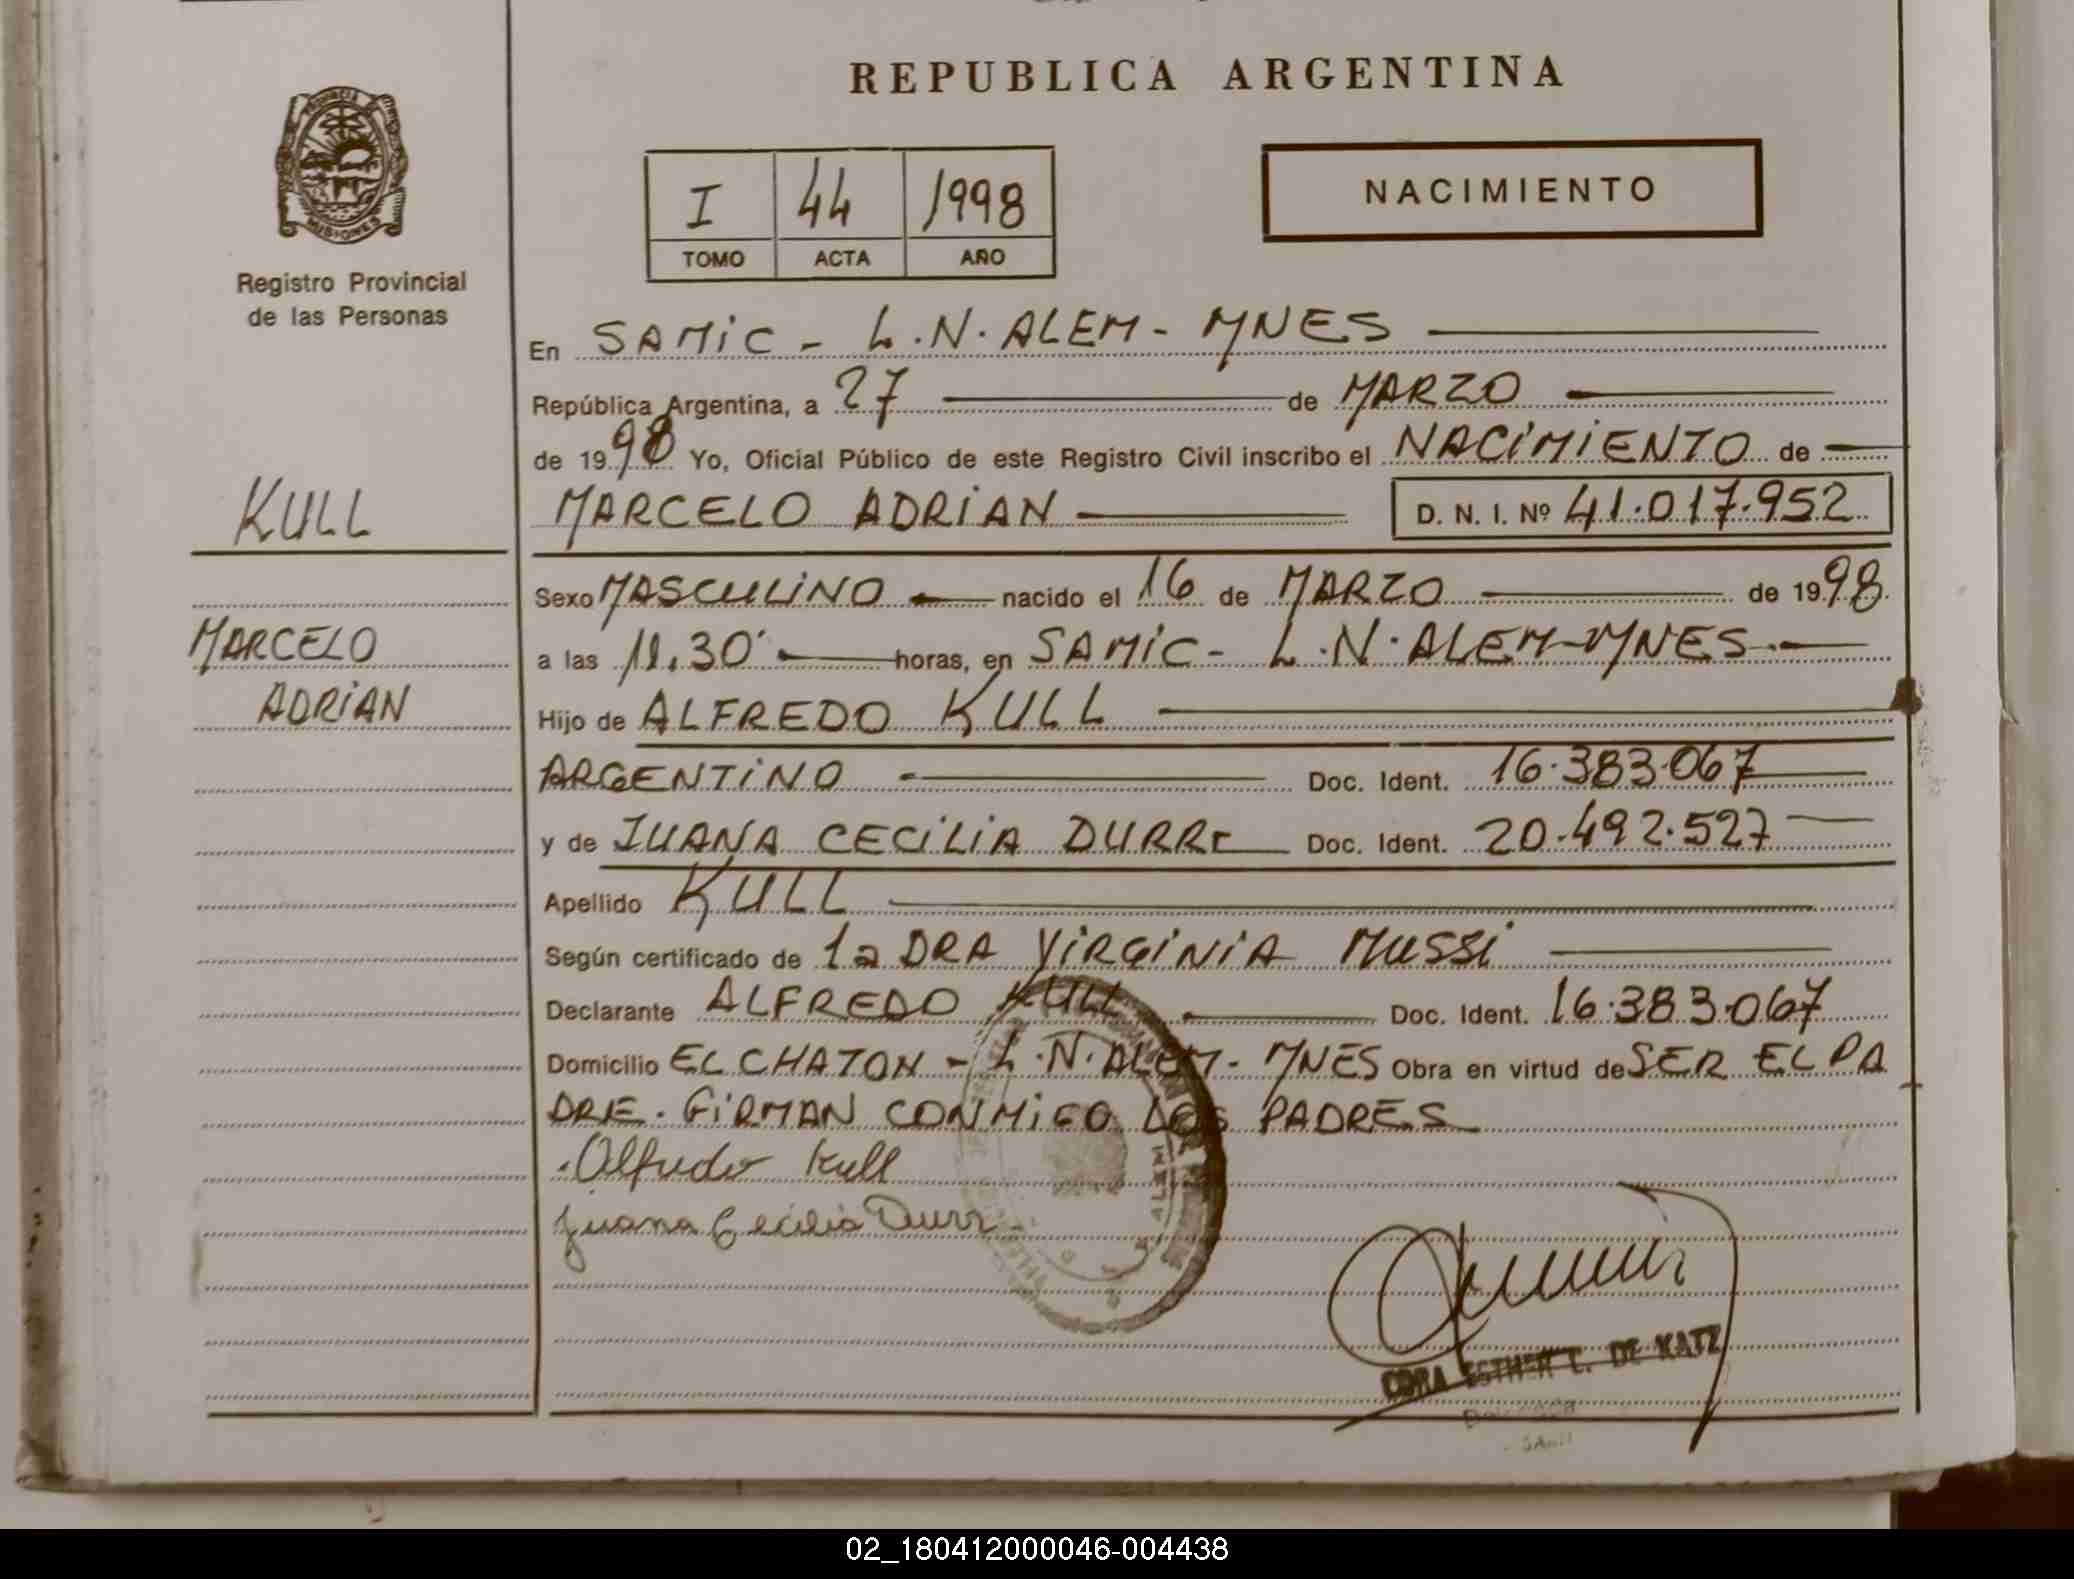 REPUBLICA ARGENTINA
PROVINCIA
MISIONES
Registro Provincial
de las Personas
I 44 1998
TOMO ACTA AÑO
NACIMIENTO
KULL
MARCELO
ADRIAN
En SAMIC - L.N. ALEM - MNES
República Argentina, a 27 de MARZO
de 1998 Yo, Oficial Público de este Registro Civil inscribo el NACIMIENTO de
MARCELO ADRIAN D. N. I. Nº 41.017.952
Sexo MASCULINO nacido el 16 de MARZO de 1998
a las 11.30 horas, en SAMIC - L.N. ALEM - MNES
Hijo de ALFREDO KULL
ARGENTINO Doc. Ident. 16.383.067
y de JUANA CECILIA DURR Doc. Ident. 20.492.527
Apellido KULL
Según certificado de la DRA VIRGINIA MUSSI
Declarante ALFREDO KULL Doc. Ident. 16.383.067
Domicilio EL CHATON - L.N. ALEM - MNES Obra en virtud de SER EL PA
DRE. FIRMAN CONMIGO LOS PADRES
Alfredo Kull
Juana Cecilia Durr
ALEM
CDRA ESTHER L. DE KATZ
02_180412000046-004438